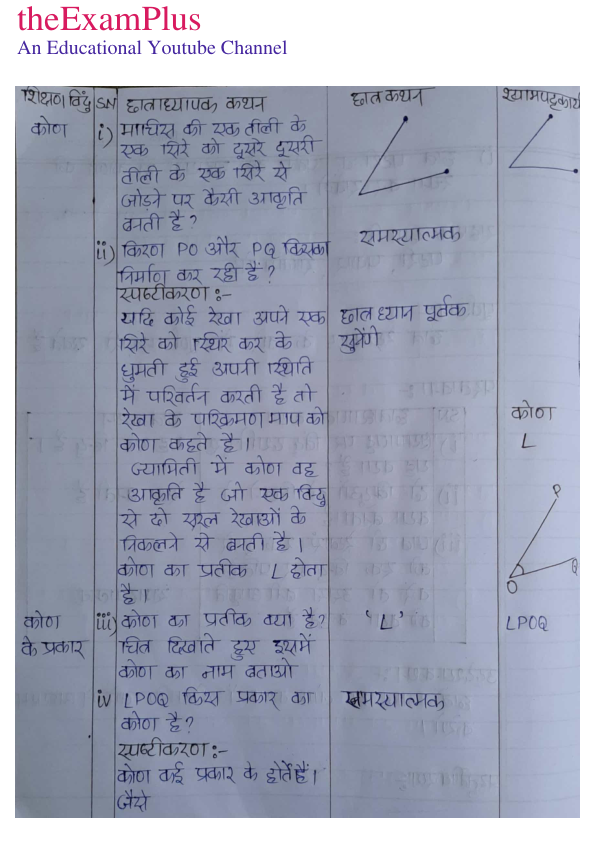 theExamPlus
An Educational Youtube Channel
शिक्षण बिंदु SN छात्राध्यापक कथन छात्र कथन श्यामपट्ट कार्य
कोण i) माचिस की एक तीली के
एक सिरे को दूसरे दूसरी
तीली के एक सिरे से
जोड़ने पर कैसी आकृति
बनती है?
समस्यात्मक
ii) किरण PO और PQ किसका
निर्माण कर रही हैं?
स्पष्टीकरण :-
यदि कोई रेखा अपने एक छात्र ध्यान पूर्वक
सिरे को स्थिर कर के सुनेंगे
घुमती हुई अपनी स्थिति
में परिवर्तन करती है तो
रेखा के परिक्रमण माप को कोण
कोण कहते है। L
ज्यामिती में कोण वह
आकृति है जो एक बिन्दु P
से दो सरल रेखाओं के
निकलने से बनती है।
कोण का प्रतीक L होता Q
है। O
कोण iii) कोण का प्रतीक क्या है? 'L' LPOQ
के प्रकार चित्र दिखाते हुए इसमें
कोण का नाम बताओ
iv LPOQ किस प्रकार का समस्यात्मक
कोण है?
स्पष्टीकरण :-
कोण कई प्रकार के होते हैं।
जैसे